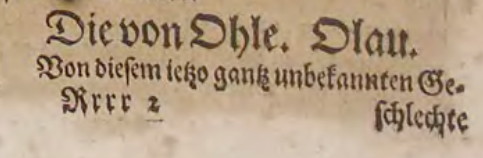 Die von Ohle. Olau.
Von dieſem ietzo gantz unbekannten Ge-
Rrrr 2 ſchlechte